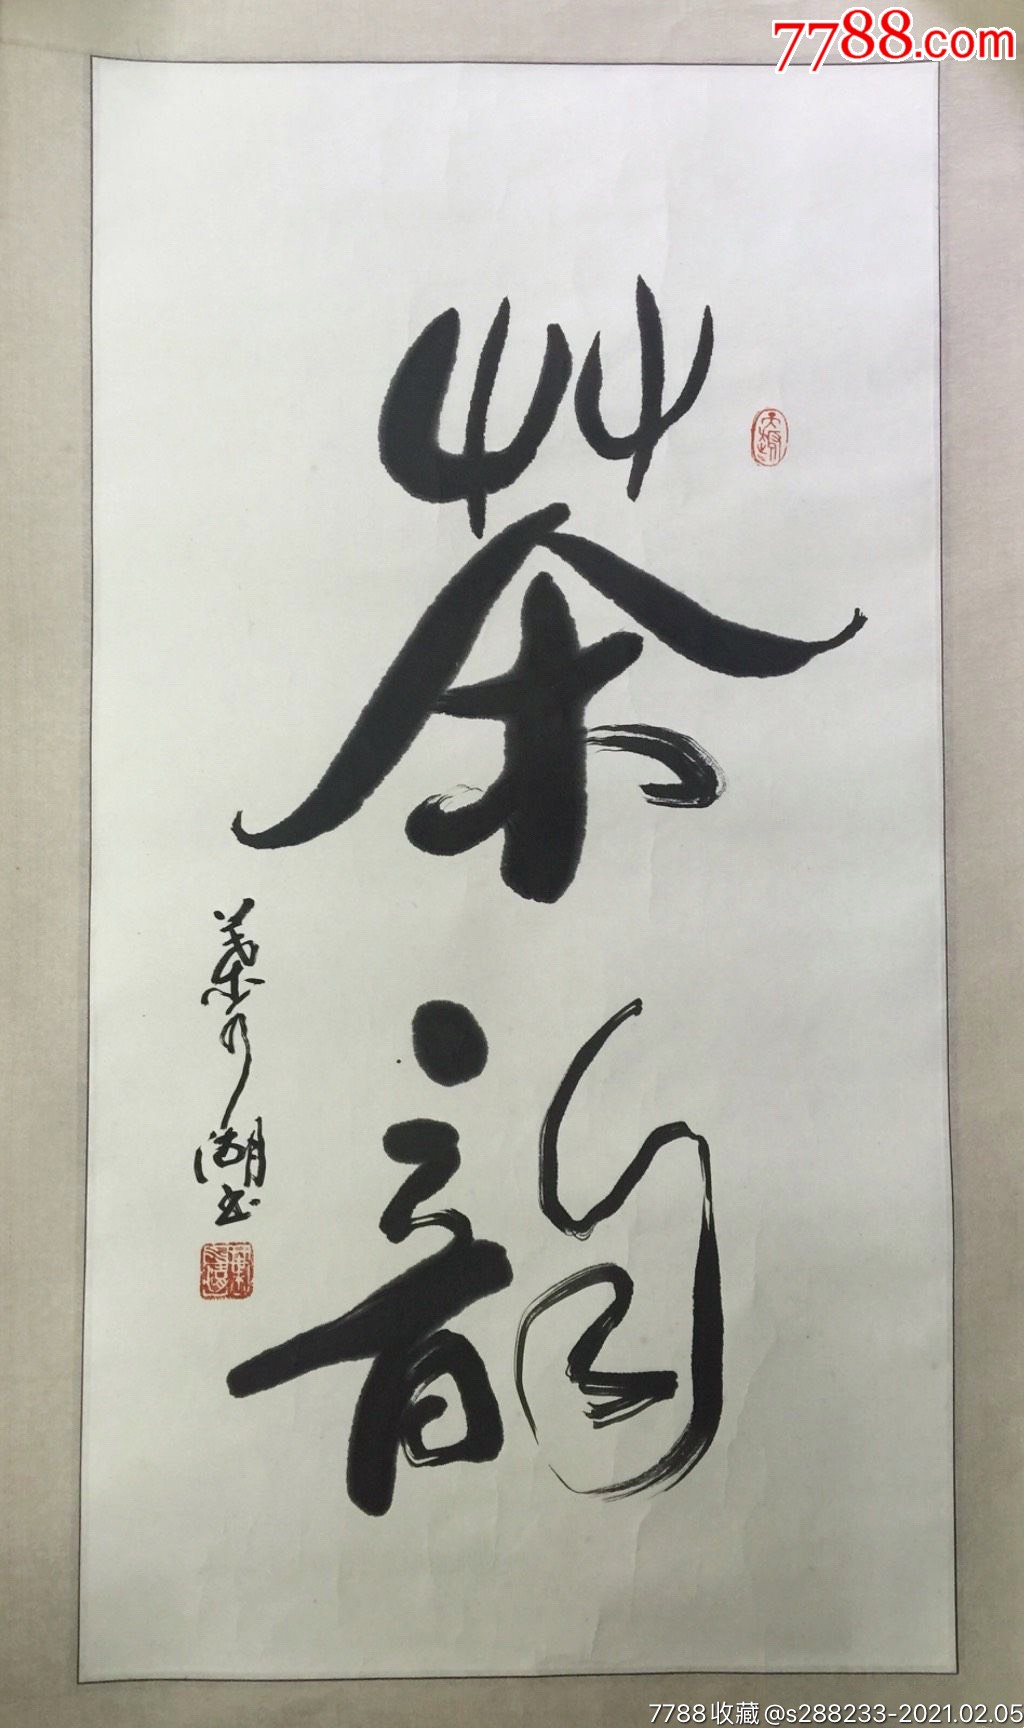 7788.com
茶韵
葉乃湖书
7788收藏@s288233-2021.02.05